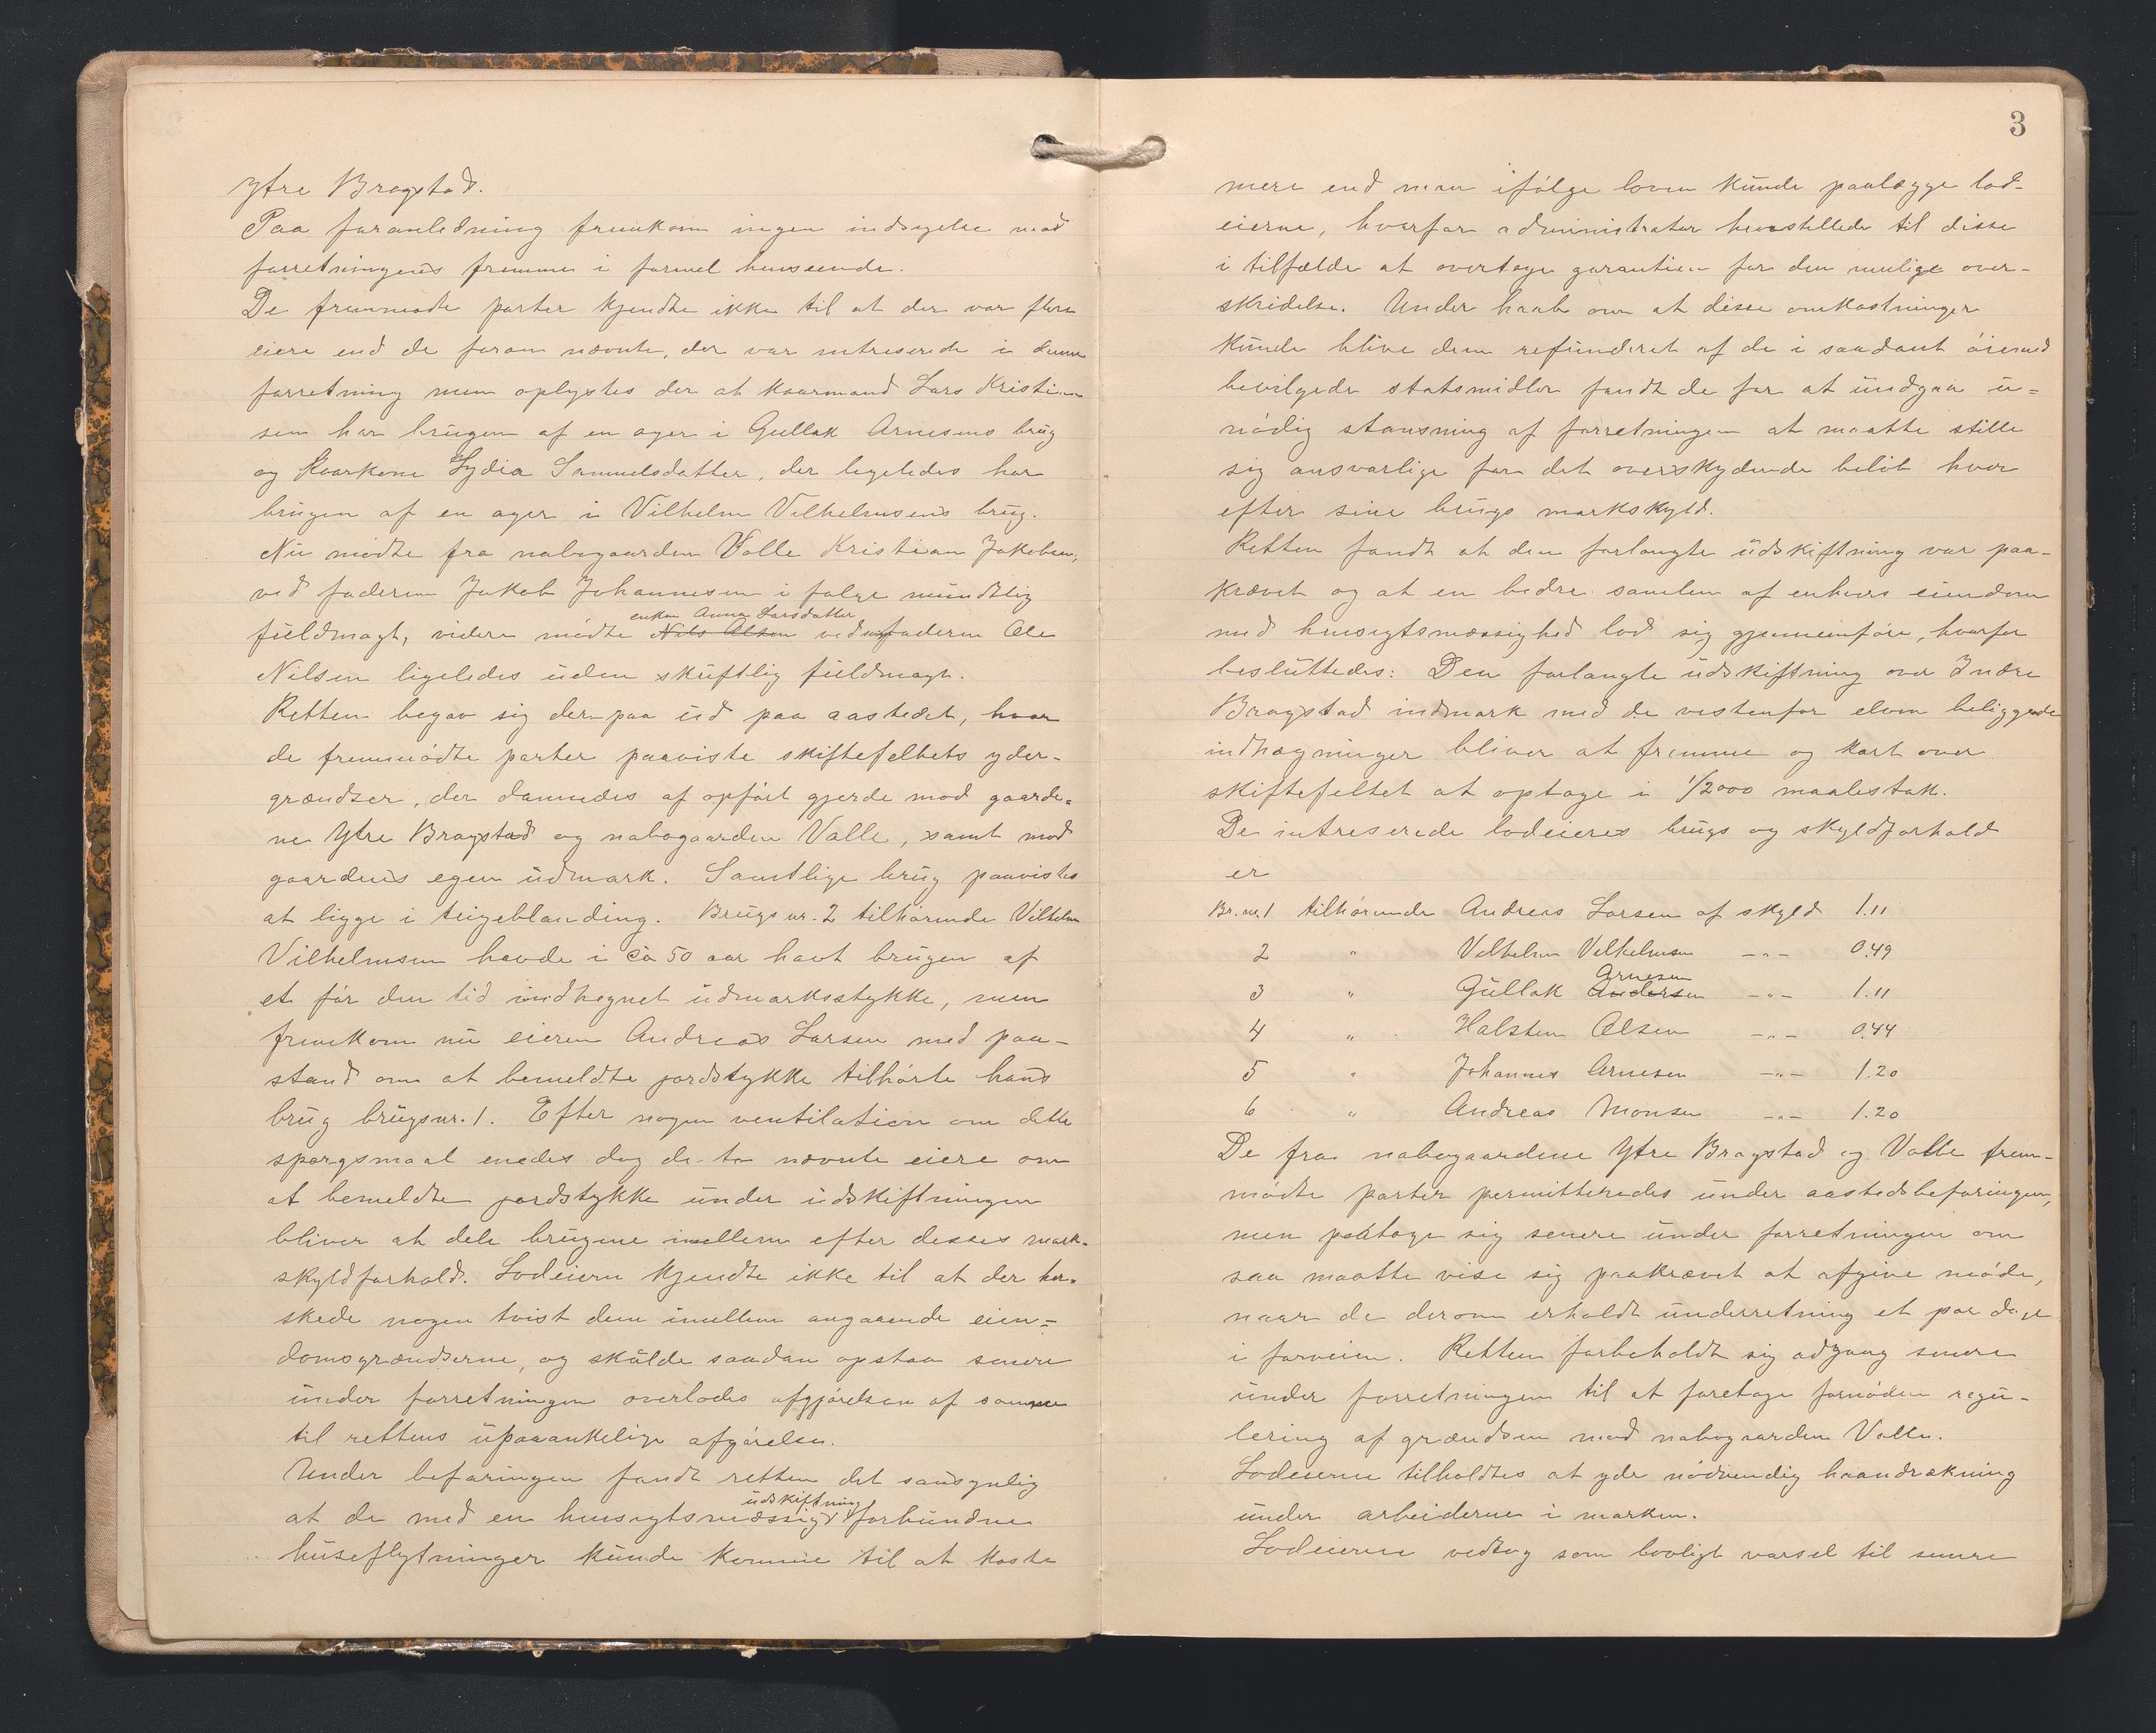 Ytre Bragstad.
Paa foranledning fremkom ingen indsigelse mod
forretningens fremme i formel henseende.
De fremmødte parter kjendte ikke til at der var flere
eiere end de foran nævnte, der var intreserede i denne
forretning men oplystes der at kaarmand Lars Kristian-
sen har brugen af en ager i Gullak Arnesens brug
og kaarkone Lydia Samuelsdatter, der ligeledes har
brugen af en ager i Vilhelm Vilhelmsens brug.
Nu mødte fra nabogaarden Valle Kristian Jakobsen,
ved faderen Jakob Johannesen i følge mundtlig
enken Anna Larsdatter
fuldmagt, videre mødte Nils Olsen ved faderen Ole
Nilsen ligeledes uden skriftlig fuldmagt.
Retten begav sig derpaa ud paa aastedet, hvor
de fremmødte parter paaviste skiftefeltets yder-
grændser, der dannedes af opført gjerde mod gaarde-
ne Ytre Bragstad og nabogaarden Valle, samt mod
gaardens egen udmark. Samtlige brug paavistes
at ligge i teigeblanding. Brugsnr. 2 tilhørende Vilhelm
Vilhelmsen havde i ca 50 aar havt brugen af
et før den tid indhegnet udmarksstykke, men
fremkom nu eieren Andreas Larsen med paa-
stand om at bemeldte jordstykke tilhørte hans
brug brugsnr. 1. Efter nogen ventilation om dette
spørgsmaal enedes dog de to nævnte eiere om
at bemeldte jordstykke under udskiftningen
bliver at dele brugene imellem efter desses mark-
skyldforhold. Lodeierne kjendte ikke til at der her-
skede nogen tvist dem imellem angaaende eien-
domsgrændserne, og skulde saadan opstaa senere
under forretningen overlodes afgjørelsen af samme
til rettens upaaankelige afgørelse.
Under befaringen fandt retten det sansynlig
udskiftning
at de med en hensigtsmæssig forbundne
huseflytninger kunde komme til at koste
3
mere end man ifølge loven kunde paalægge lod-
eierne, hvorfor administrator henstillede til disse
i tilfælde at overtage garantien for den mulige over-
skridelse. Under haab om at disse omkostninger
kunde blive dem refunderet af de i saadant øiemed
bevilgede statsmidler fandt de for at undgaa u-
nødig stansning af forretningen at maatte stille
sig ansvarlige for det overskydende beløb hver
efter sine brugs markskyld.
Retten fandt at den forlangte udskiftning var paa-
krævet og at en bedre samlen af enhvers eiendom
med hensigtsmæssighed lod sig gjennemføre, hvorfor
besluttedes: Den forlangte udskiftning over Indre
Bragstad indmark med de vestenfor elven beliggende
indhægninger bliver at fremme og kart over
skiftefeltet at optage i 1/2000 maalestok.
De intreserede lodeieres brugs og skyldforhold
er
Br. nr. 1 tilhørende Andreas Larsen af skyld 1.11
2 " Vilhelm Vilhelmsen -"- 0.49
Arnesen
3 " Gullak Andersen -"- 1.11
4 " Halsten Olsen -"- 0.44
5 " Johannes Arnesen -"- 1.20
6 " Andreas Monsen -"- 1.20
De fra nabogaardene Ytre Bragstad og Valle frem-
mødte parter permitteredes under aastedsbefaringen,
men paatoge sig senere under forretningen om
saa maatte vise sig paakrævet at afgive møde,
naar de derom erholdt underretning et par dage
i forveien. Retten forbeholdt sig adgang senere
under forretningen til at foretage fornøden regu-
lering af grændsen mod nabogaarden Valle.
Lodeierne tilholdtes at yde nødvendig haandrækning
under arbeiderne i marken.
Lodeierne vedtog som lovligt varsel til senere